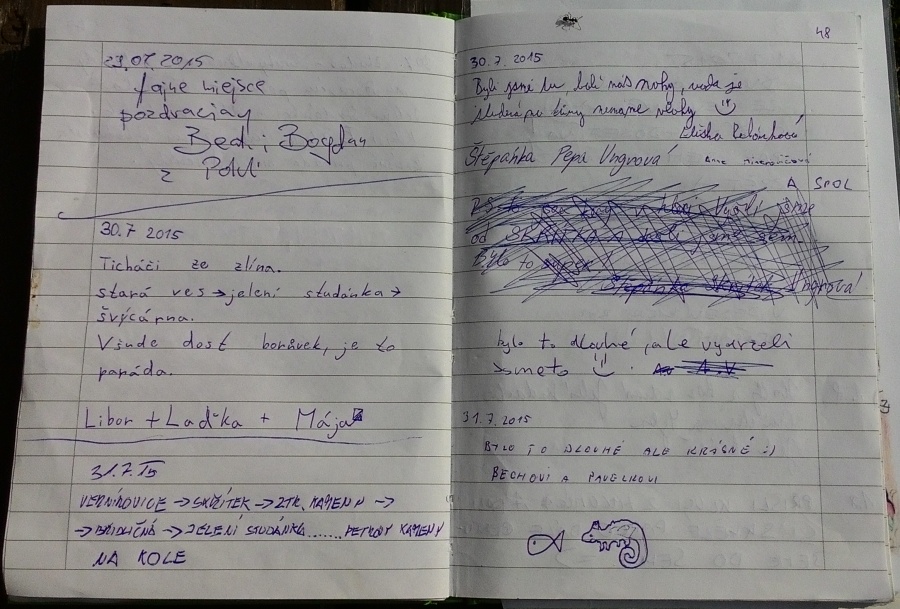 29.07.2015
fajne miejsce
pozdraviany
Beah i Bogdan
z Polski
30.7 2015
Ticháči ze zlína.
stará ves → jelení studánka →
švýcárna.
Všude dost borůvek, je to
paráda.
Libor + Laďka + Mája
31.7.15
VERNÍŘOVICE → SKŘÍTEK → ZTR. KAMENY →
→ BŘIDLIČNÁ → JELENÍ STUDÁNKA....... PETROVY KAMENY
NA KOLE
48
30.7.2015
Byli jsme tu, bolí nás nohy, voda je
studená
Eliška
Štěpánka Pepa Ungrová
A SPOL
od SKŘÍTKA
Bylo to
Štěpánka Ungrová
bylo to dlouhé, ale vydrželi
jsme to
31.7.2015
BYLO TO DLOUHÉ ALE KRÁSNÉ :)
BECHOVI A PAVELKOVI